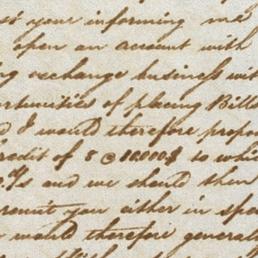 your informing me
open an account with
exchange business wit
ortunities of placing Bills
I would therefore propo
redit of 5 @ 10.000$ to whic
and we should then
remit you either in spe
would therefore generall